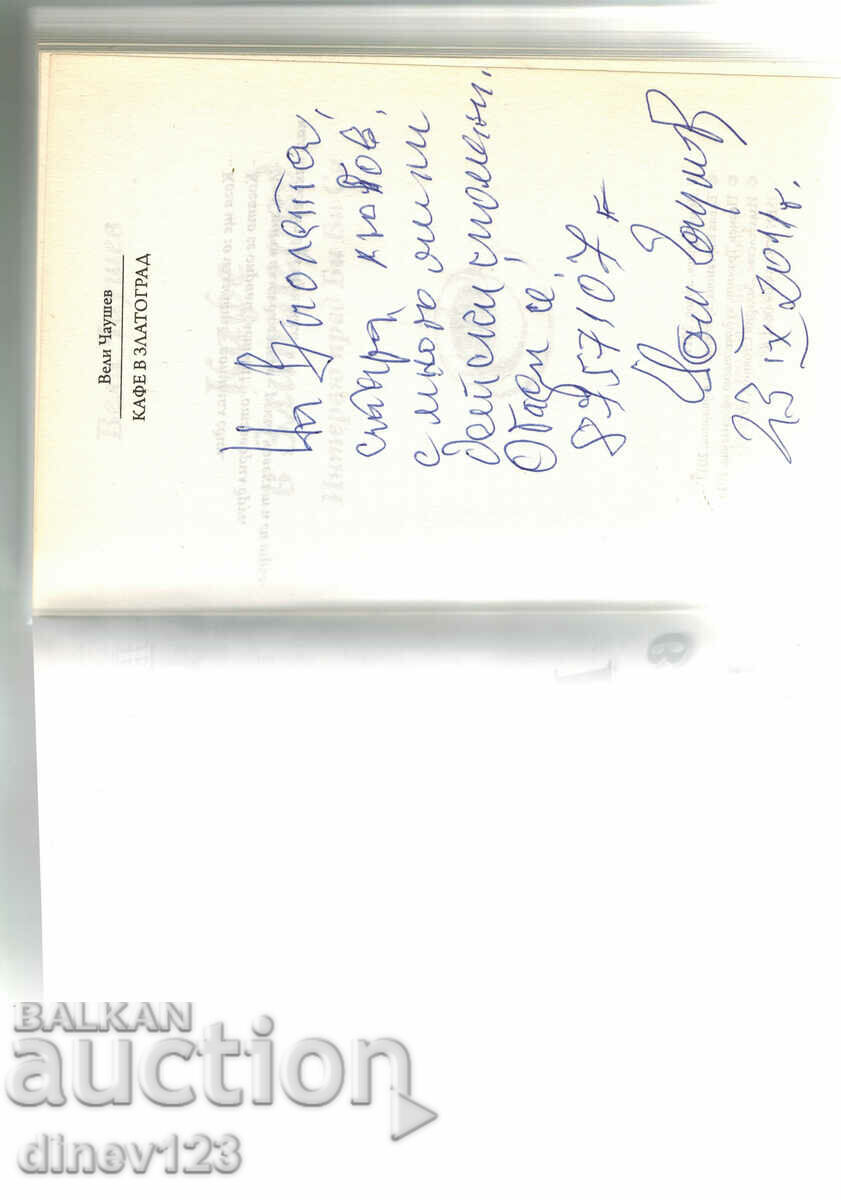 Вели Чаушев
КАФЕ В ЗЛАТОГРАД
На Виолета,
стара любов,
с много мили
детски спомени.
Обади се!
8757107
Чаушев
23 IX 2011 г.
BALKAN
auction
dinev123